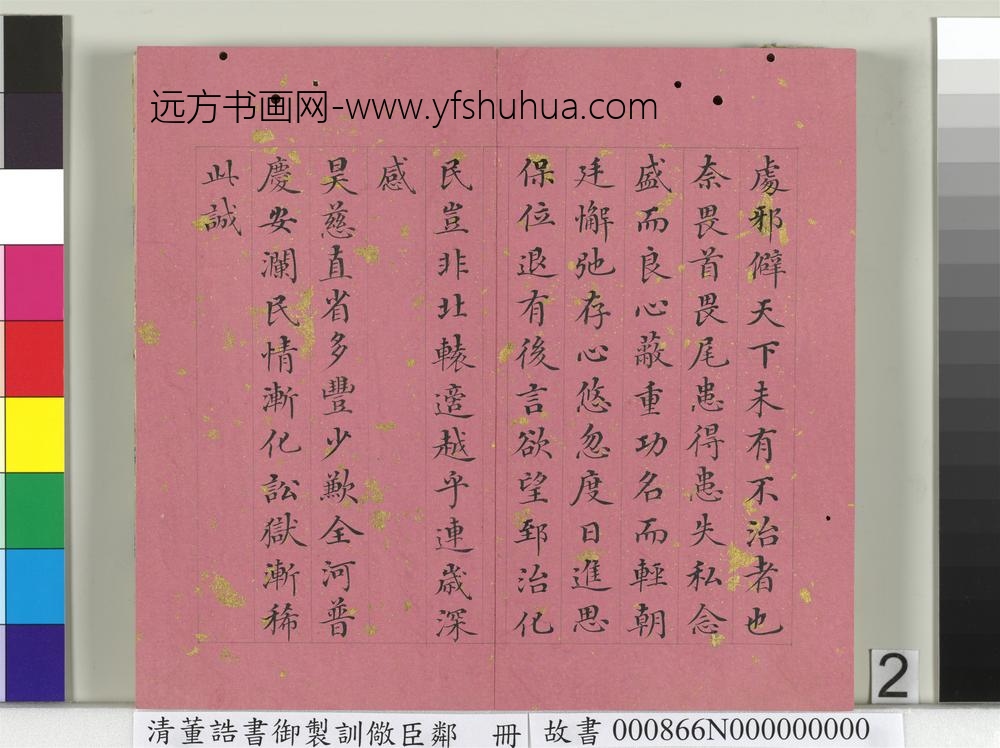 远方书画网-www.yfshuhua.com
處邪僻天下未有不治者也
奈畏首畏尾患得患失私念
盛而良心蔽重功名而輕朝
廷懈弛存心悠忽度日進思
保位退有後言欲望郅治化
民豈非北轅適越乎連歲深
感
昊慈直省多豐少歉全河普
慶安瀾民情漸化訟獄漸稀
此誠
2
清董誥書御製訓儆臣鄰 冊 故書 000866N000000000